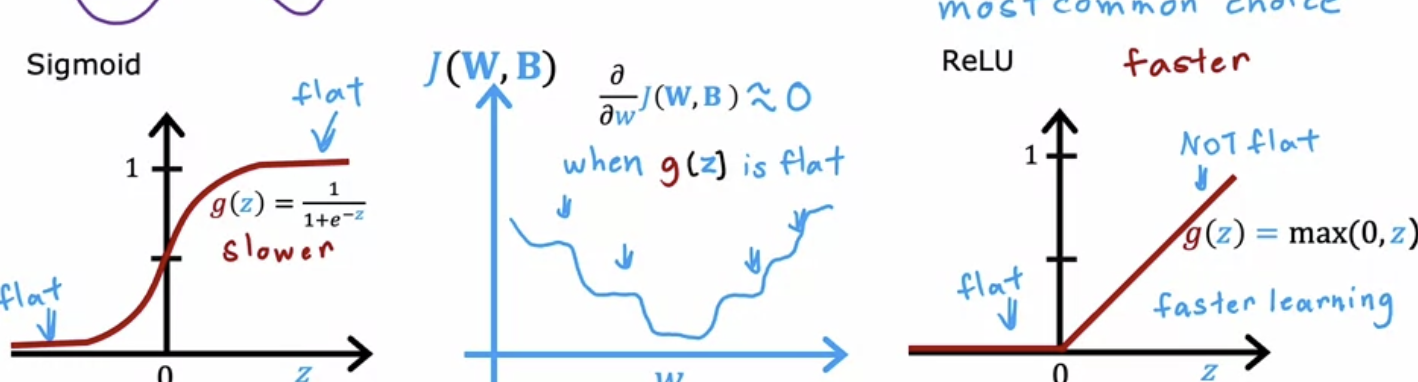 most common choice
Sigmoid
flat
1
g(z) = 1/(1+e^-z)
slower
flat
0
z
J(W, B)
∂/∂w J(W, B) ≈ 0
when g(z) is flat
w
ReLU
faster
1
NOT flat
g(z) = max(0, z)
flat
faster learning
0
z